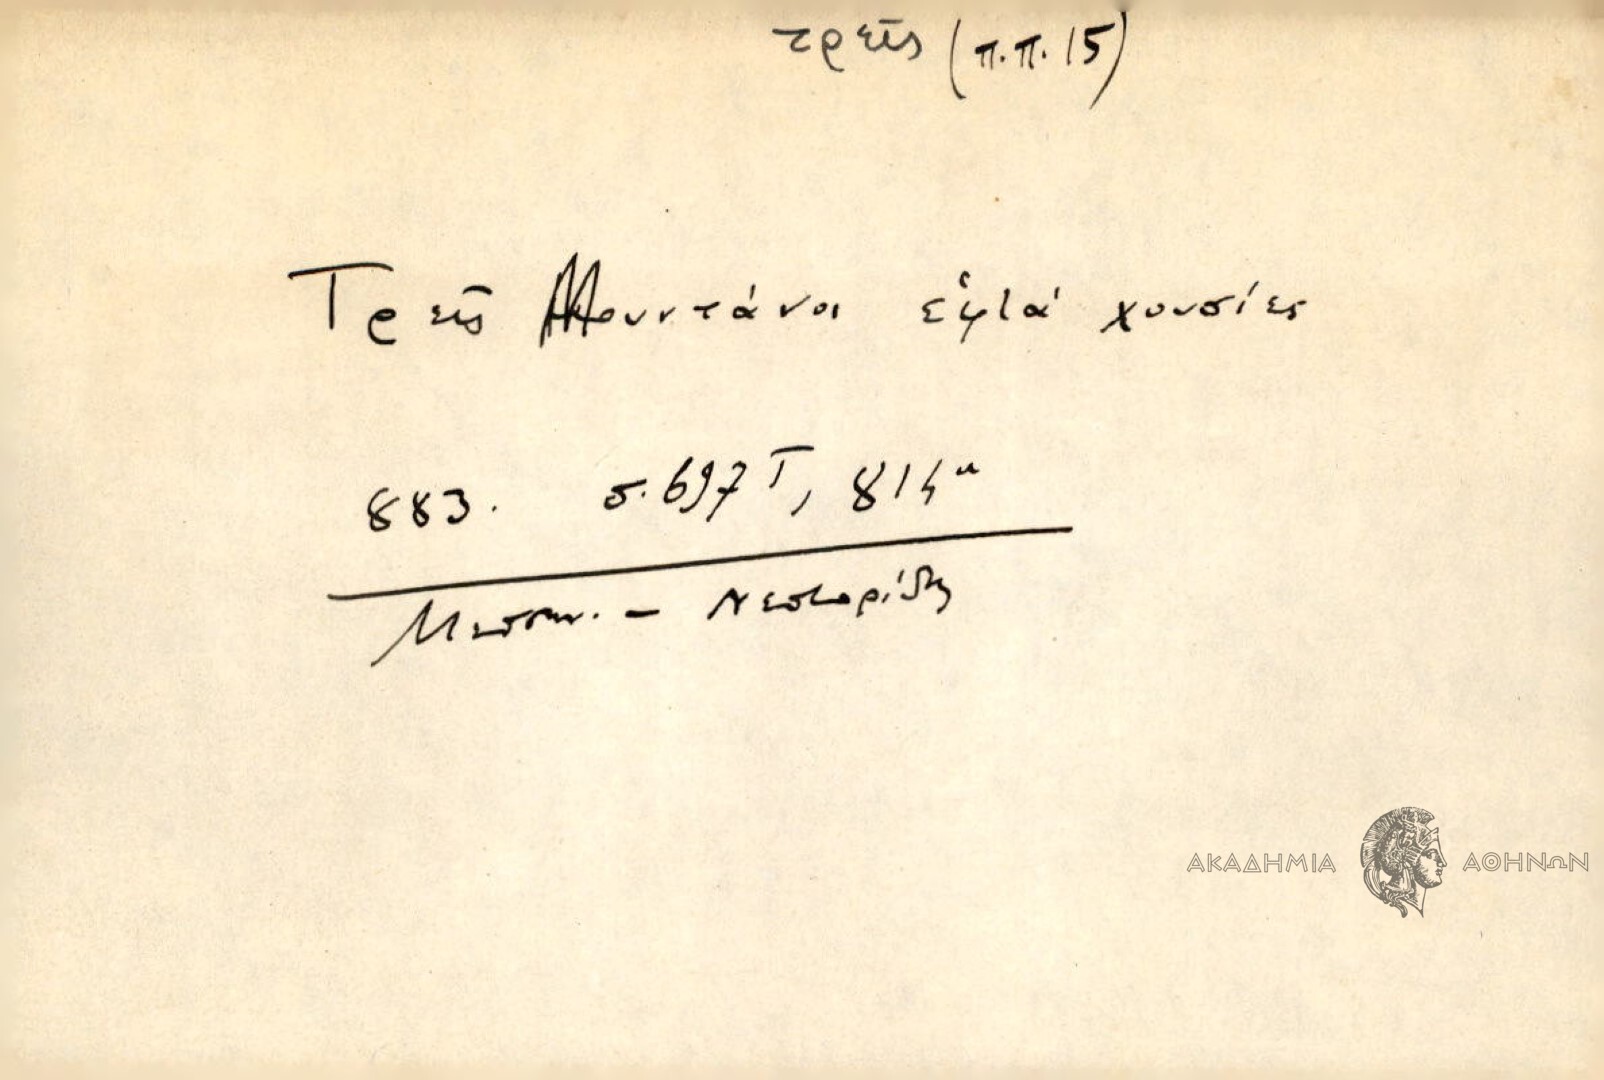 τρεῖς (π.π. 15)
Τρεῖς Μουντάνοι εἑφτά χουσίες
883. σ. 697 Τ, 814
Μεσσην. – Νεστορίδη
ΑΚΑΔΗΜΙΑ ΑΘΗΝΩΝ